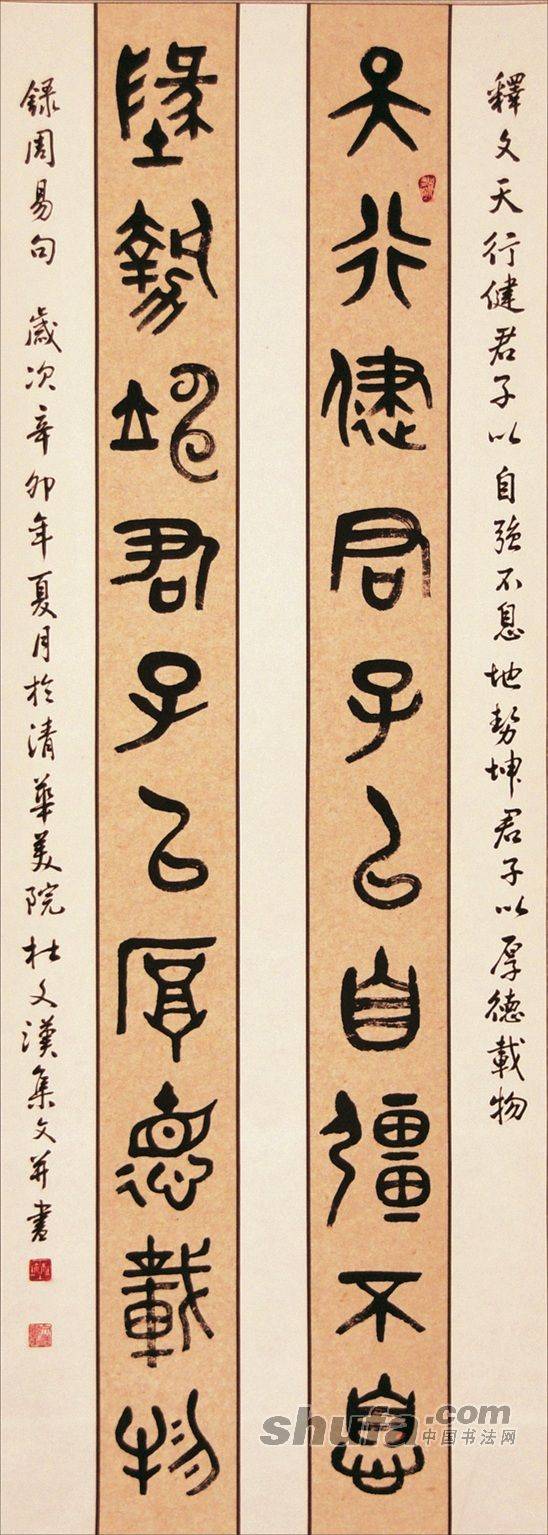 釋文天行健君子以自強不息地勢坤君子以厚德載物
天行健君子㠯自彊不息
墬勢坤君子㠯厚德載物
錄周易句 歲次辛卯年夏月於清華美院杜文漢集文并書
shufa.com
中国书法网